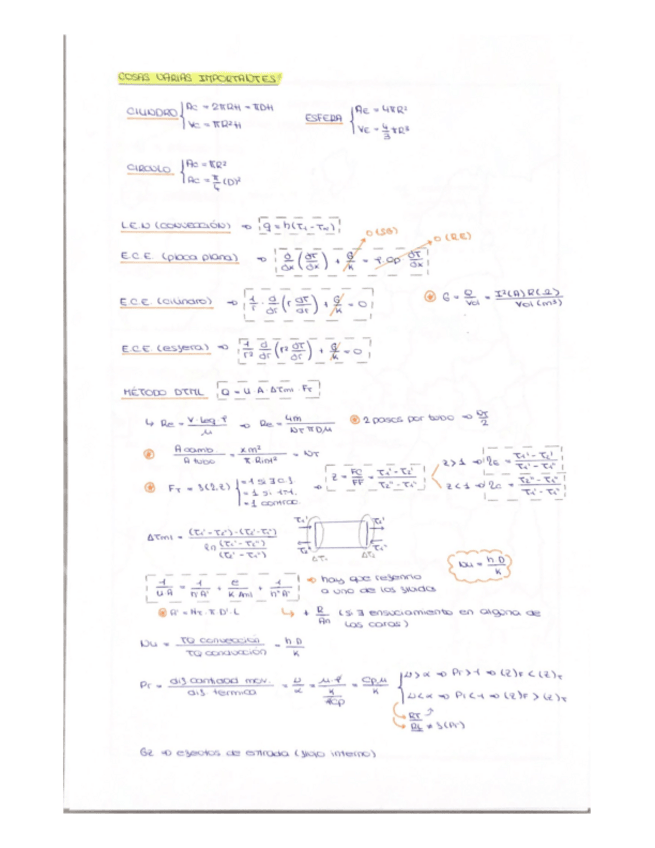 COSAS VARIAS IMPORTANTES
CILINDRO { Ac = 2πRH = πDH
Vc = πR²H
ESFERA { Ae = 4πR²
Ve = 4/3 πR³
CIRCULO { Ac = πR²
Ac = π/4 (D)²
L.E.N (CONVECCIÓN) ⇒ q = h(T₁ - T∞)
0 (SG)
0 (R.E)
E.C.E. (placa plana) ⇒ ∂/∂x (∂T/∂x) + G/k = ρ · cp ∂T/∂x
E.C.E. (cilindro) ⇒ 1/r · ∂/∂r (r ∂T/∂r) + G/k = 0
G = Q/Vol = I²(A) R(Ω)/Vol (m³)
E.C.E. (esfera) ⇒ 1/r² ∂/∂r (r² ∂T/∂r) + G/k = 0
MÉTODO DTML Q = U · A · ΔTml · FT
↳ Re = V Leq ρ/μ ⇒ Re = 4m/NT π D μ
2 pasos por tubo ⇒ NT/2
A camb/A tubo = x m²/π R int² = NT
FT = f(z, ε)
z = FC/FF = T₁' - T₂'/T₂'' - T₁''
z > 1 ⇒
z < 1 ⇒
ΔTml =
ΔT₁ ΔT₂
Nu = h D/k
1/UA = 1/h'A' + e/k Aml + 1/h''A''
⇒ hay que referirlo
a uno de los fluidos
A' = NT · π D' · L
↳ + R/An (si ∃ ensuciamiento en alguna de
las caras)
Nu = TQ convección/TQ conducción = h D/k
Pr = dif. cantidad mov./dif. térmica = ν/α = Cp μ/k
ν > α ⇒ Pr > 1 ⇒
ν < α ⇒ Pr < 1 ⇒
Gz ⇒ efectos de entrada (flujo interno)